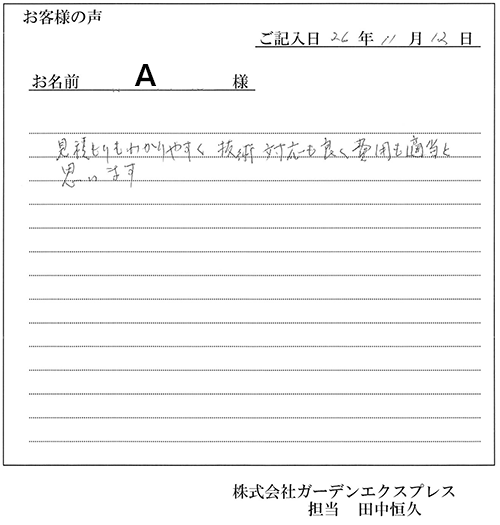 お客様の声
ご記入日 26 年 11 月 12 日
お名前 A 様
見積もりもわかりやすく 技術 対応も良く費用も適当と
思います
株式会社ガーデンエクスプレス
担当 田中恒久